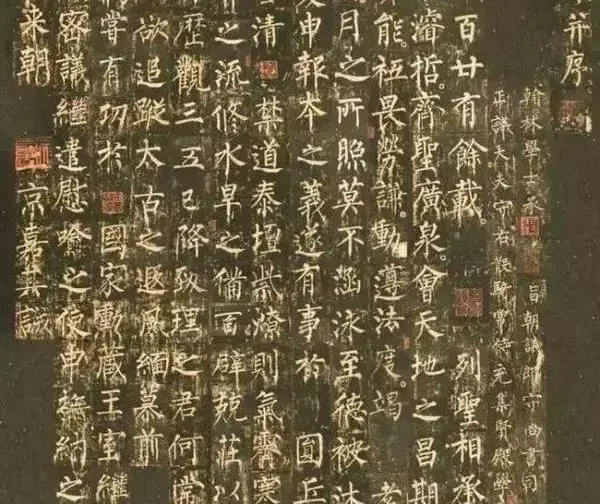 并序
翰林學士承旨朝議郎守尚書司
正議大夫守右散騎常侍充集賢殿學
百廿有餘載列聖相承
濬哲齊聖廣泉會天地之昌期
能祗畏勞謙動遵法度竭孝
月之所照莫不涵泳至德被沐
申報本之義遂有事於圓丘
清禁道泰壇紫燎則氣霽寒
之流修水旱之備百辟兢莊以
歷觀三五已降致理之君何常
欲追蹤太古之遐風緬慕前
嘗有功於國家勳藏王室繼
密議繼遣慰喻之使申撫納之
來朝上京嘉其誠